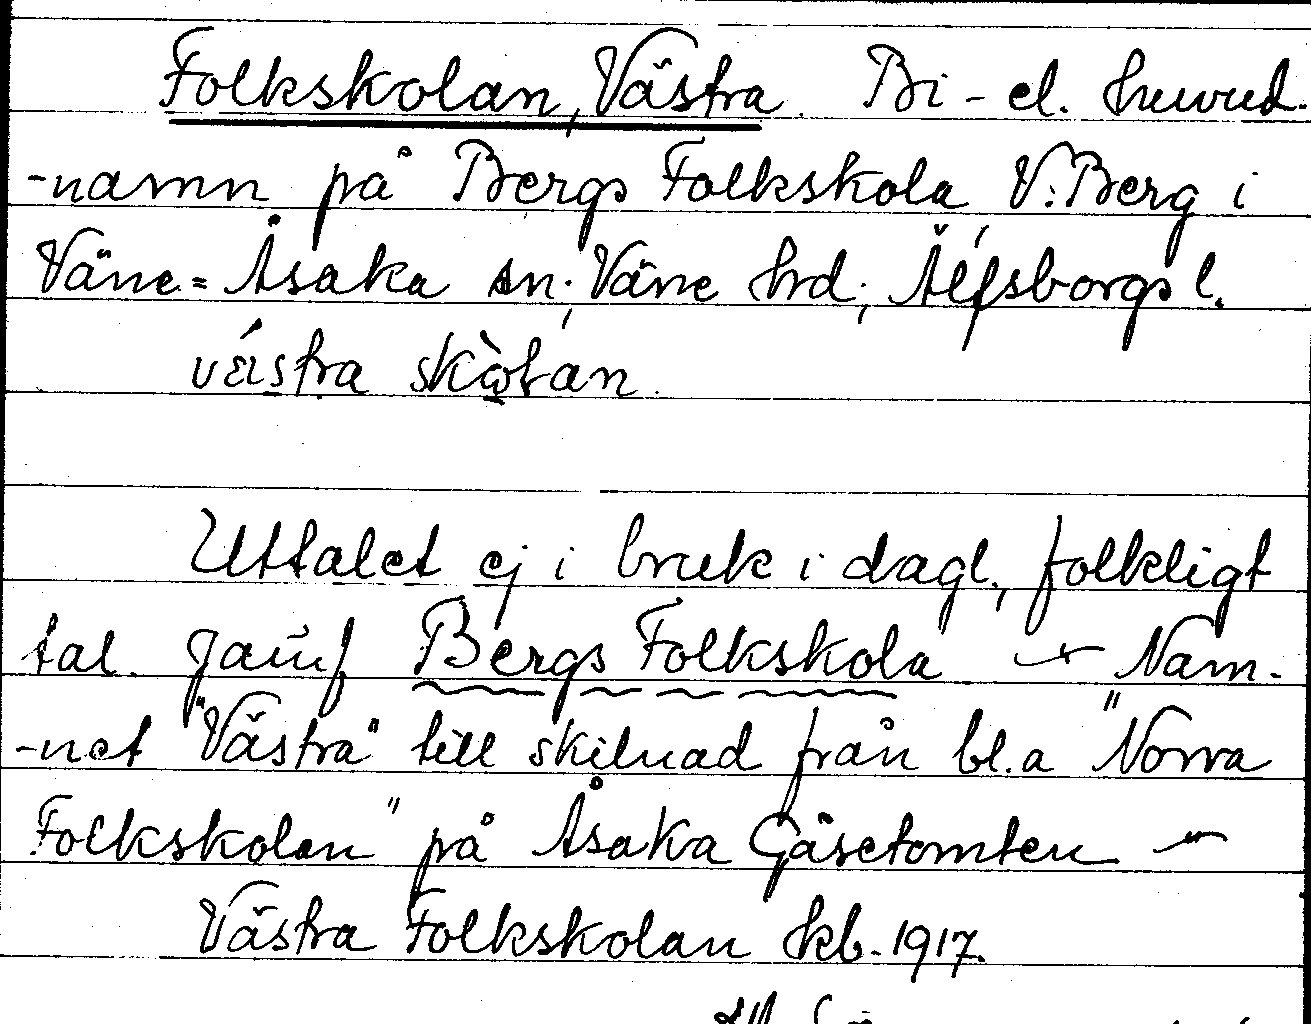 Folkskolan, Västra. Bi- el. huvud-
-namn på Bergs Folkskola V. Berg i
Väne-Åsaka sn. Väne hrd; Älfsborgs l.
Uttalet ej i bruk i dagl., folkligt
tal. jämf Bergs Folkskola — Nam-
-net "Västra" till skilnad från bl.a "Norra
Folkskolan" på Åsaka Gåsetomten —
Västra Folkskolan kb. 1917.